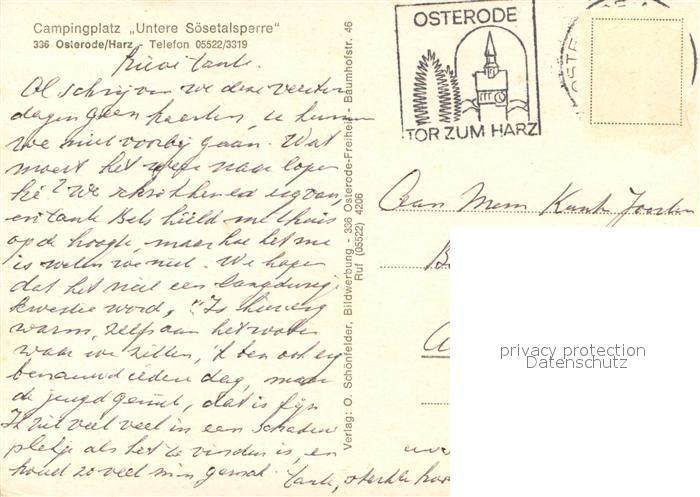 Campingplatz „Untere Sösetalsperre"
336 Osterode/Harz - Telefon 05522/3319
Lieve tante.
Al schrijven we deze
dagen geen kaarten, u kunnen
we niet voorbij gaan. Wat
moest het weer naar lopen
hé? We schrokken ed erg van
en tante Bets hield me thuis
op de hoogte, maar hoe het nu
is weten we niet. We hopen
dat het niet een langdurige
kwestie word, 't Is hier erg
warm, zelfs aan het water
waar we zitten, 'k ben ook erg
benauwd iedere dag, maar
de jeugd geniet, dat is fijn
Ik zit veel veel in een schaduw
plekje als het te vinden is, en
houd zo veel mijn gemak. tante, sterkte
Verlag: O. Schönfelder, Bildwerbung - 336 Osterode-Freiheit - Baumhofstr. 46
Ruf (05522) 4206
OSTERODE
TOR ZUM HARZ
Aan Mevr
privacy protection
Datenschutz